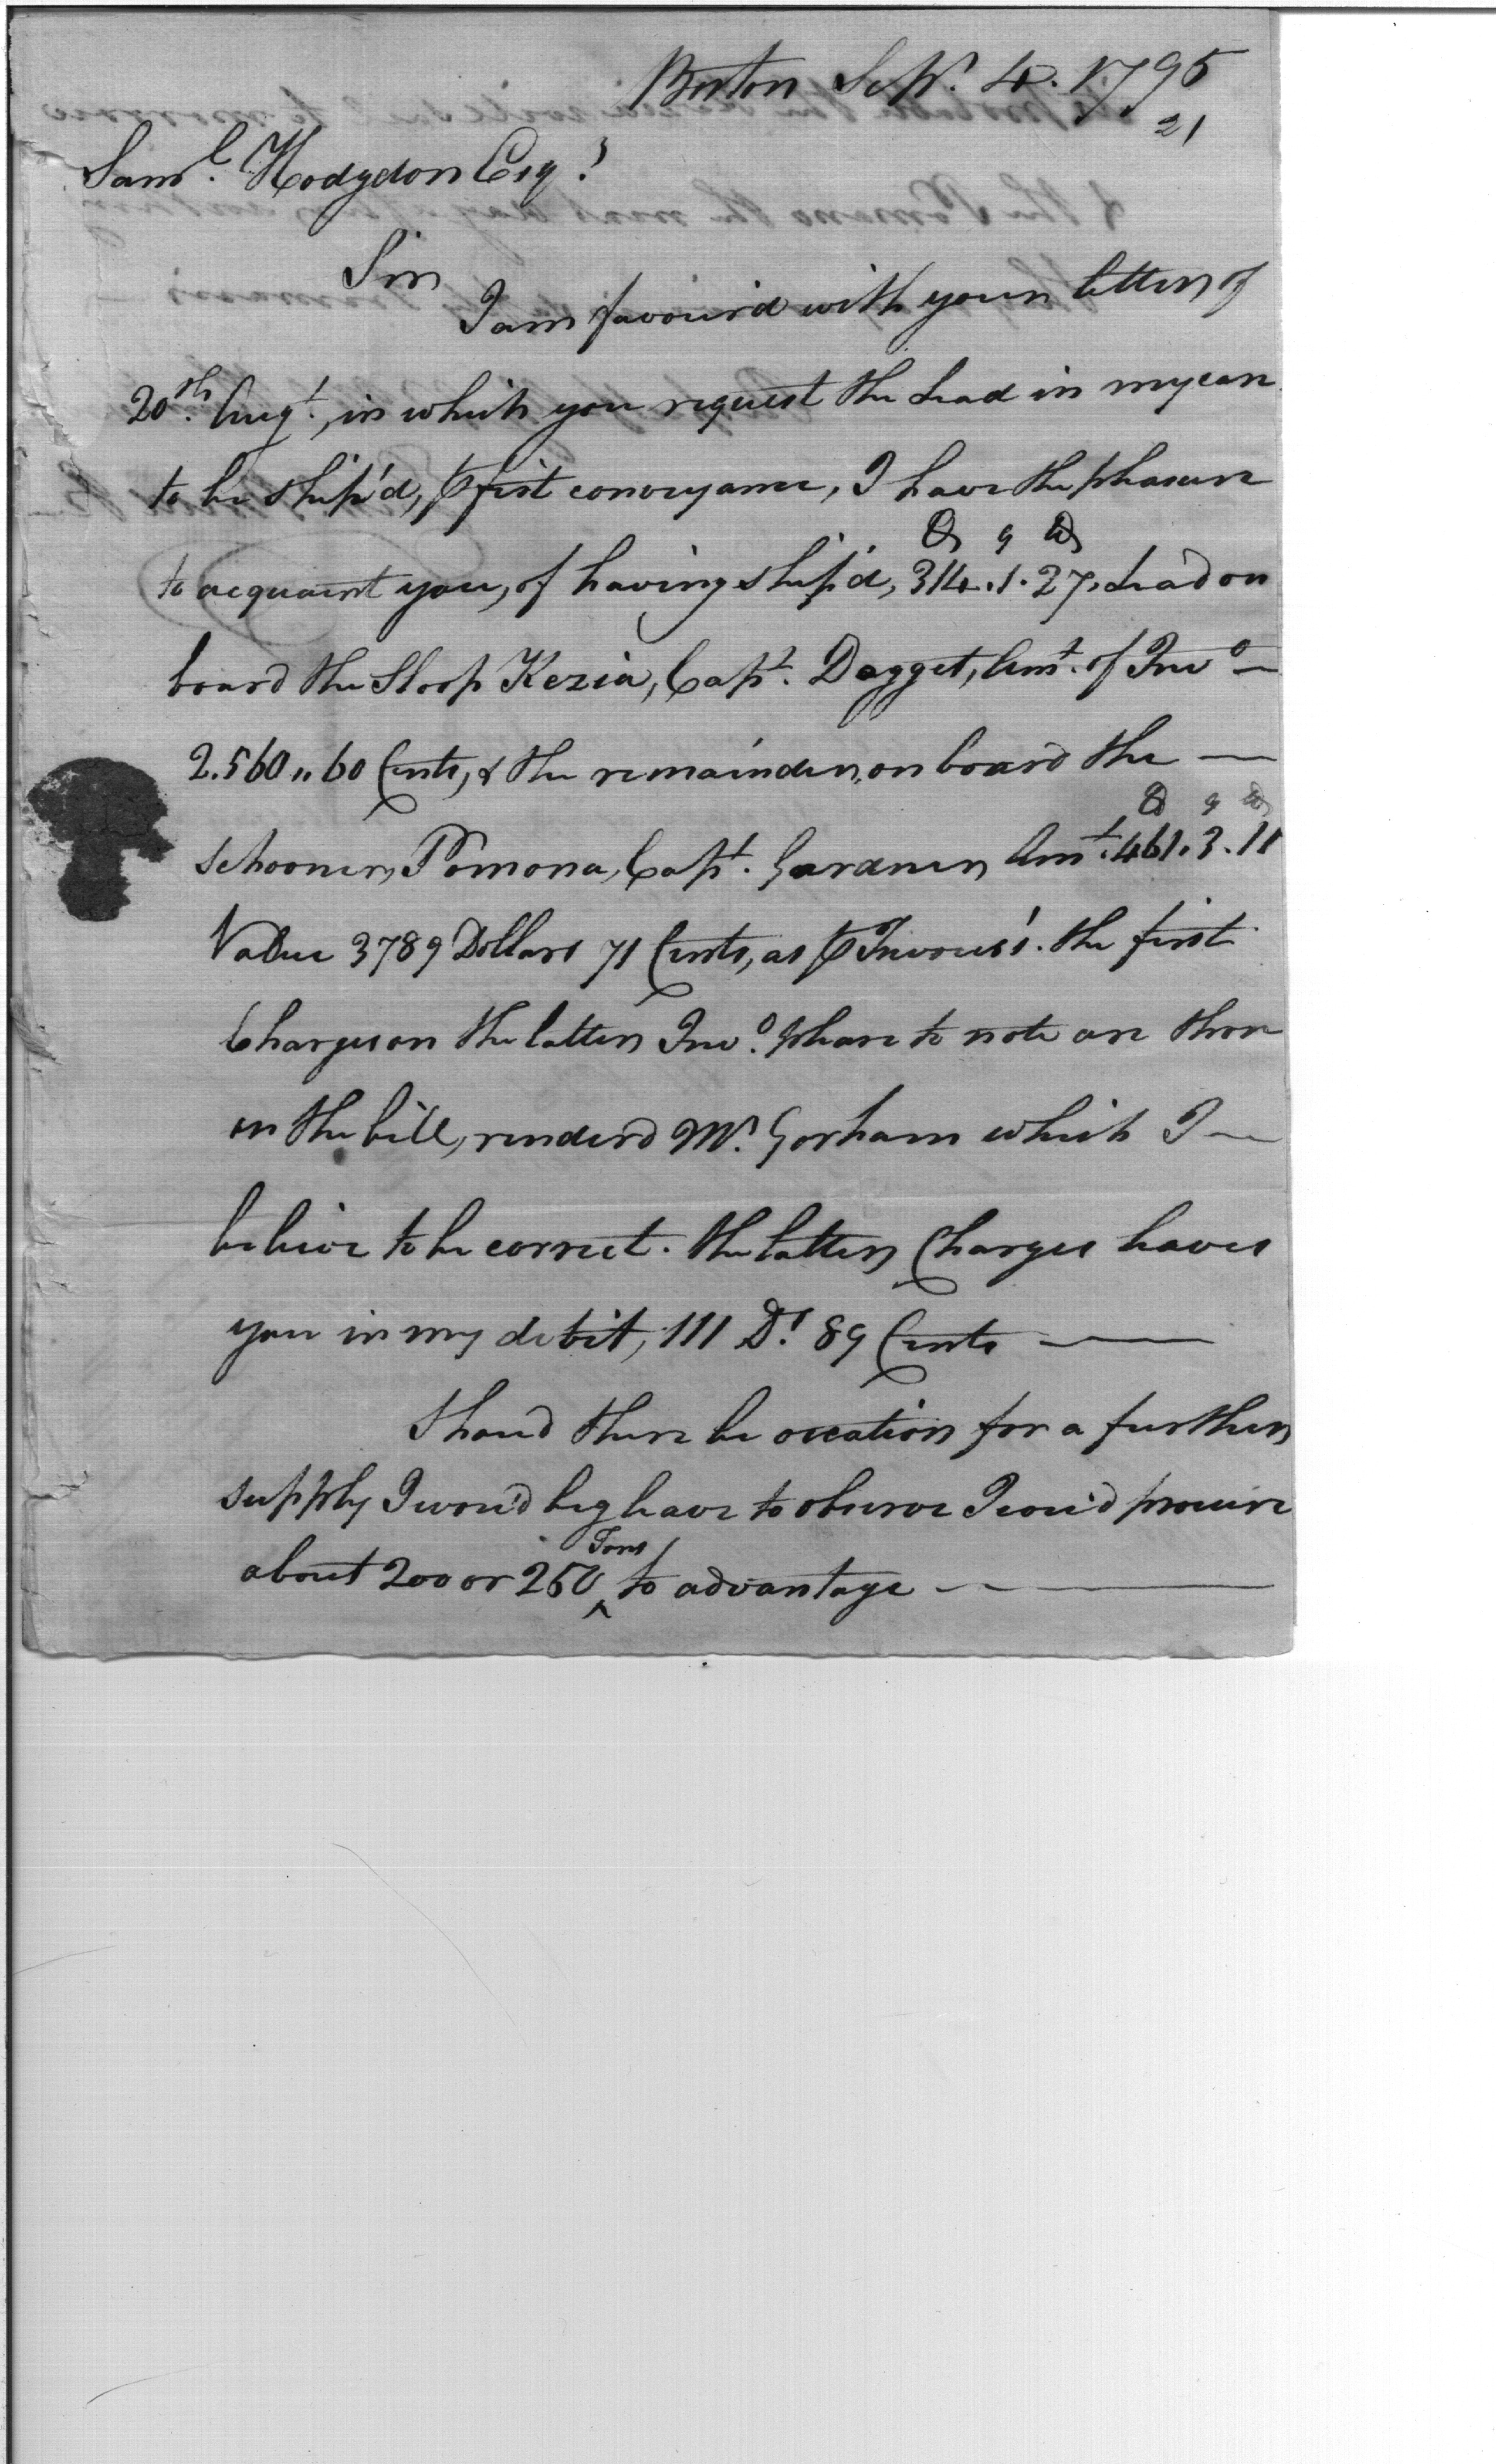 Boston Sept. 4. 1795
21
Saml. Hodgdon Esqr.
Sir
I am favour'd with your letter of
20th. Augt., in which you request the Lead in my care
to be ship'd, ⅌ first conveyance, I have the pleasure
to acquaint you, of having ship'd, 314.1.27, Lead on
board the Sloop Kezia, Capt. Dagget, Amt. of Invo
2.560 „ 60 Cents, & the remainder, on board the
schooner, Pomona, Capt. Gardner Amt. 461.3.11
Value 3789 Dollars 71 Cents, as ⅌ Invoices. the first
Charges on the latter Invo. please to note are those
in the bill, renderd Mr. Gorham which I
believe to be correct. the latter Charges leaves
you in my debit, 111 Ds. 89 Cents
Shoud there be occation for a further
supply I wou'd beg leave to observe I cou'd procure
about 200 or 250 Tons to advantage